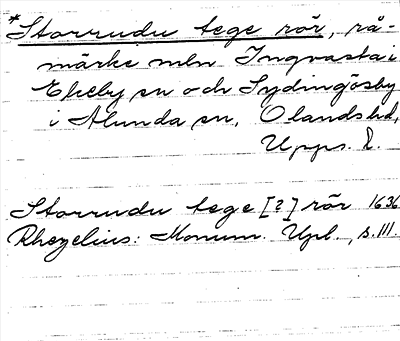 *Storrudu tege rör, rå-
märke mln Ingvasta i
Ekeby sn och Lydingösby
i Alunda sn, Olands hd,
Upps. l.
Storrudu tege [?] rör 1636
Rhezelius: Monum. Upl., s. 111.